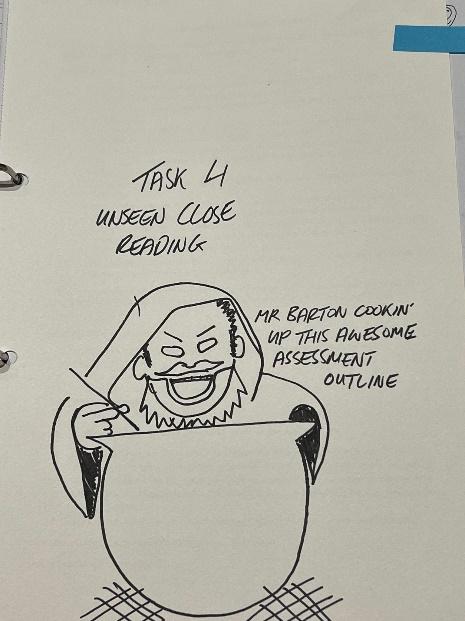 TASK 4
UNSEEN CLOSE
READING
MR BARTON COOKIN'
UP THIS AWESOME
ASSESSMENT
OUTLINE